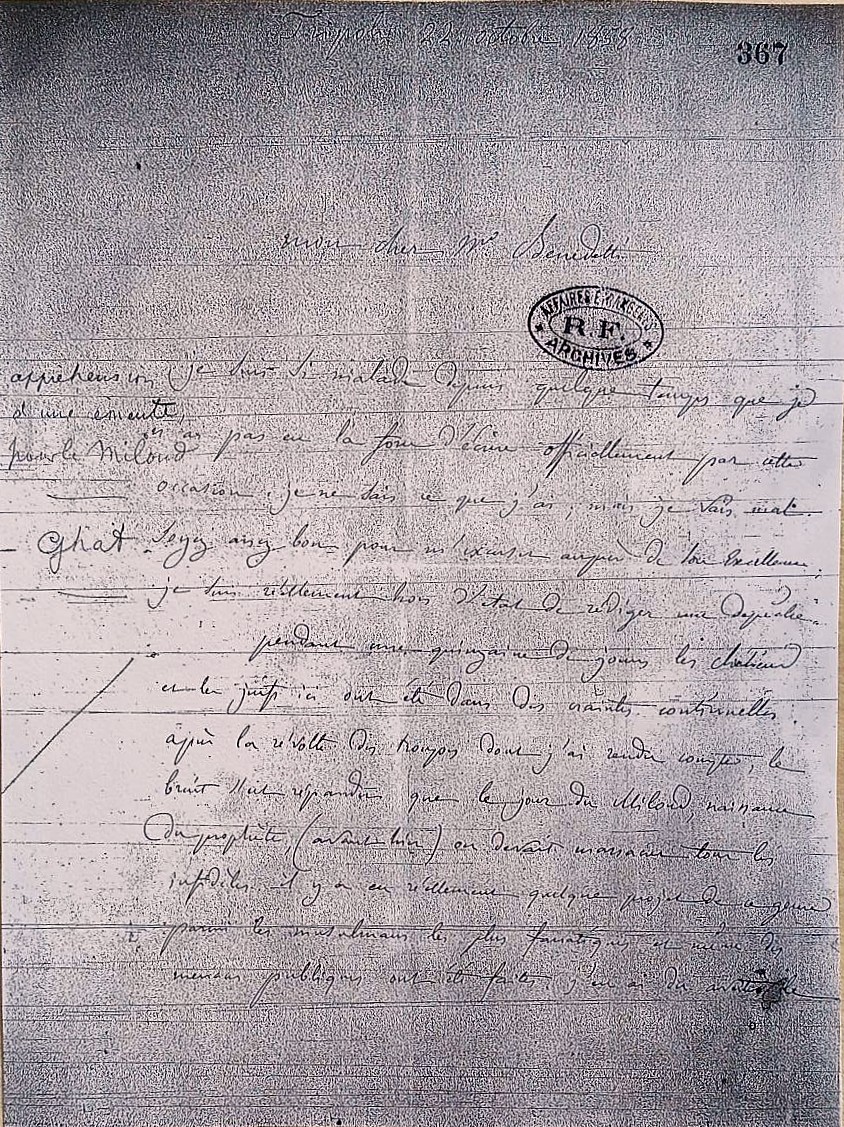 Tripoli 22 octobre 1858
367
mon cher Mr Benedetti
AFFAIRES ETRANGERES
R.F.
ARCHIVES
apprehension
d'une émeute
pour le Miloud
Ghat
je suis si malade depuis quelque temps que je
n'ai pas eu la force d'écrire officiellement par cette
occasion. je ne sais ce que j'ai, mais je vais mal.
Soyez assez bon pour m'excuser auprès de Son Excellence.
je suis réellement hors d'état de rédiger une dépêche.
pendant une quinzaine de jours les chrétiens
et les juifs ici ont été dans des craintes continuelles.
après la révolte des troupes dont j'ai rendu compte, le
bruit s'est répandu que le jour du Miloud, naissance
du prophète, (avant hier) on devait massacrer tous les
infidèles. il y a eu réellement quelque projet de ce genre
parmi les musulmans les plus fanatiques et même des
menaces publiques ont été faites. j'en ai du